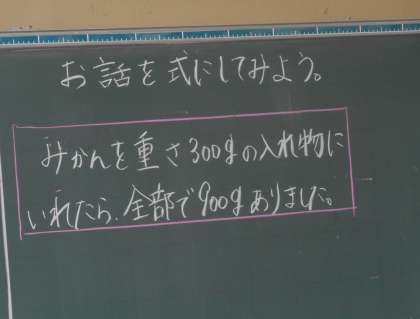 お話を式にしてみよう。
みかんを重さ300gの入れ物に
いれたら、全部で900gありました。